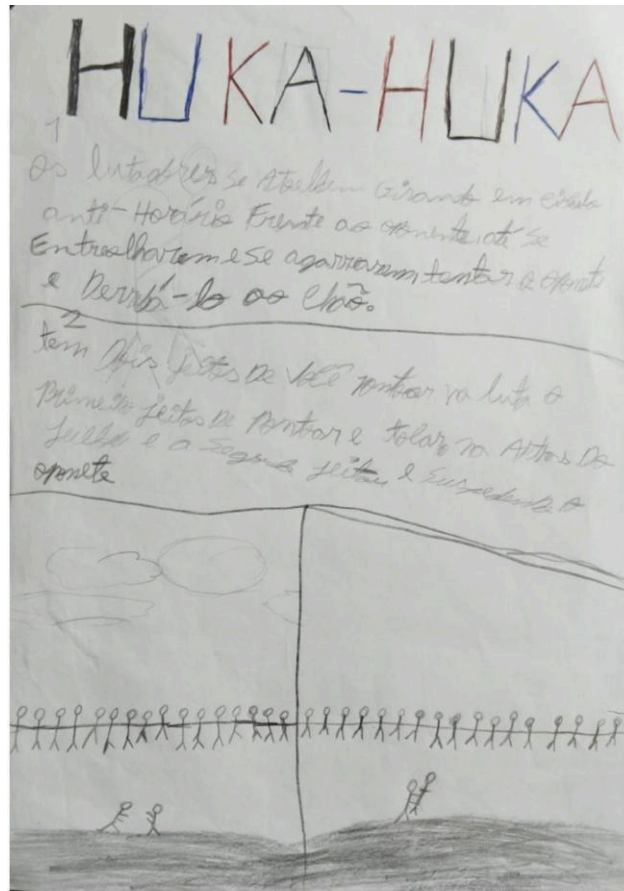 HUKA-HUKA
1
Os lutadores se Atoelham Girando em circulo
anti-Horário Frente ao oponente, até se
Entreolharem e se agarraram tentar o oponete
e Derrubá-lo ao Chão.
2
tem Dois jeitos De Você pontoar na luta o
Primeiro jeitos De Pontoar e tolar na Atras Do
e a Segunda jeitou e Suspedendo o
oponete